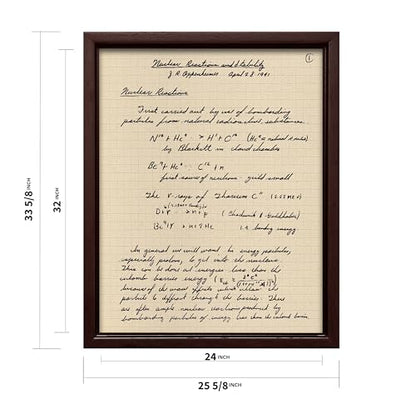 1
Nuclear Reactions and Stability
J. R. Oppenheimer April 28 1941
Nuclear Reactions
First carried out by use of bombarding
particles from natural radioactive substances.
N¹⁴ + He⁴ → H¹ + C¹⁷ (He⁴ = natural α rays)
by Blackett in cloud chambers
Be⁹ + He⁴ → C¹² + n
first source of neutrons - yield small
The γ-rays of Thorium C"
D + γ → n + p (Chadwick & Goldhaber)
Be⁹ + γ → n + 2He binding energy
In general we will want hi energy particles,
especially protons, to get into the nucleus.
This can be done at energies less than the
coulomb barrier energy
because of the wave effects which allow the
particle to diffract through the barrier. There
are often ample nuclear reactions produced by
bombarding particles of energy less than the coulomb barrier.
33 5/8 INCH
32 INCH
24 INCH
25 5/8 INCH